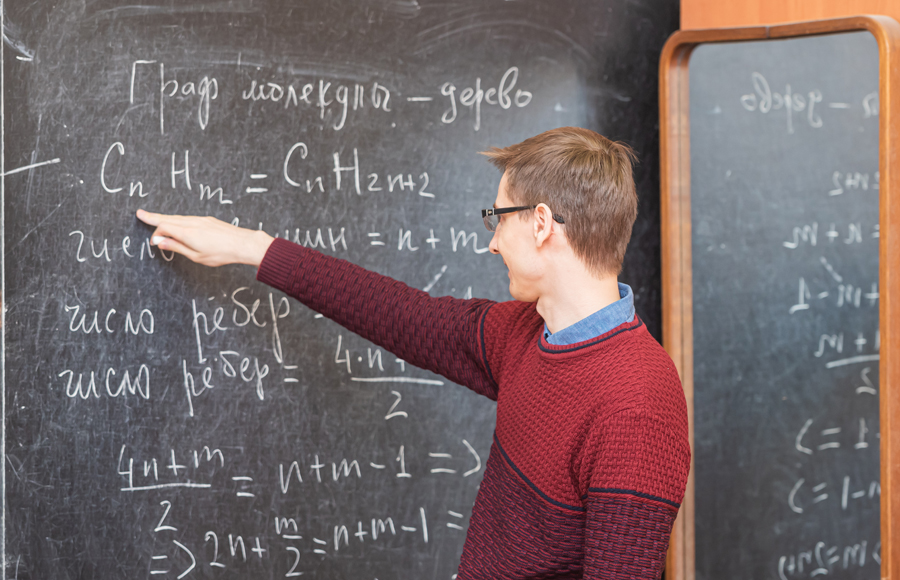 Граф молекулы – дерево
CₙHₘ = CₙH₂ₙ₊₂
число = n + m
число рёбер =
число рёбер = 4·n+ / 2
4n+m / 2 = n+m-1 =>
=> 2n + m/2 = n+m-1 =